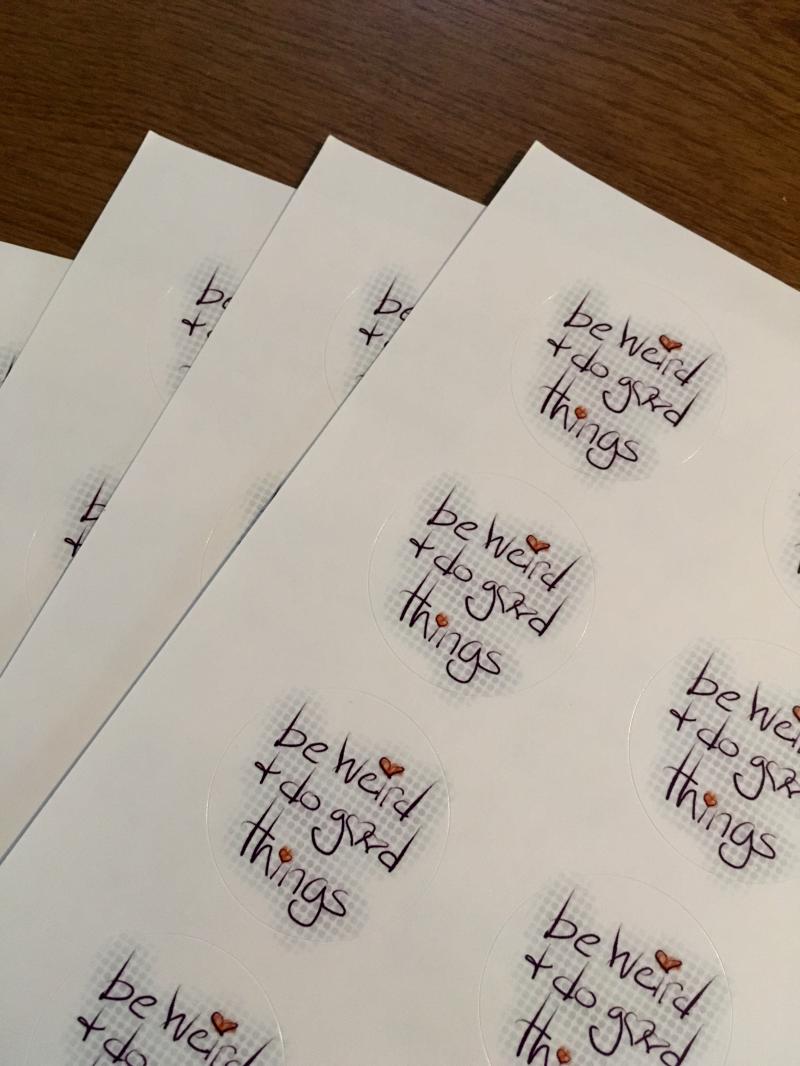 be weird
+ do good
things
be weird
+ do good
things
be wei
+ do goo
things
be weird
+ do good
things
be weird
+ do good
thi
be weird
+ do